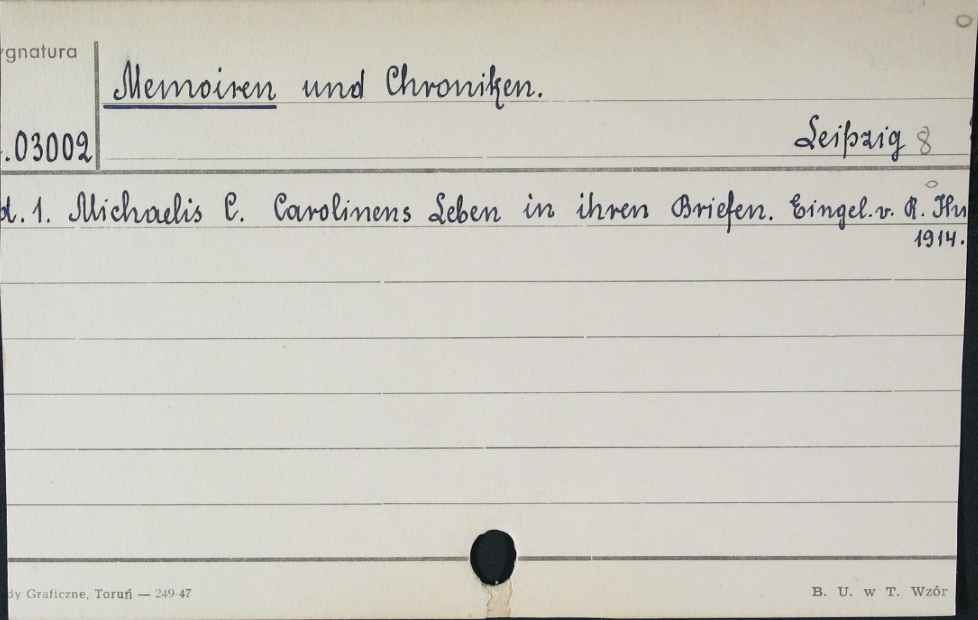 ygnatura
Memoiren und Chroniken.
.03002
Leipzig 8°
d. 1. Michaelis C. Carolinens Leben in ihren Briefen. Eingel. v. R.
1914.
dy Graficzne, Toruń — 249-47
B. U. w T. Wzór